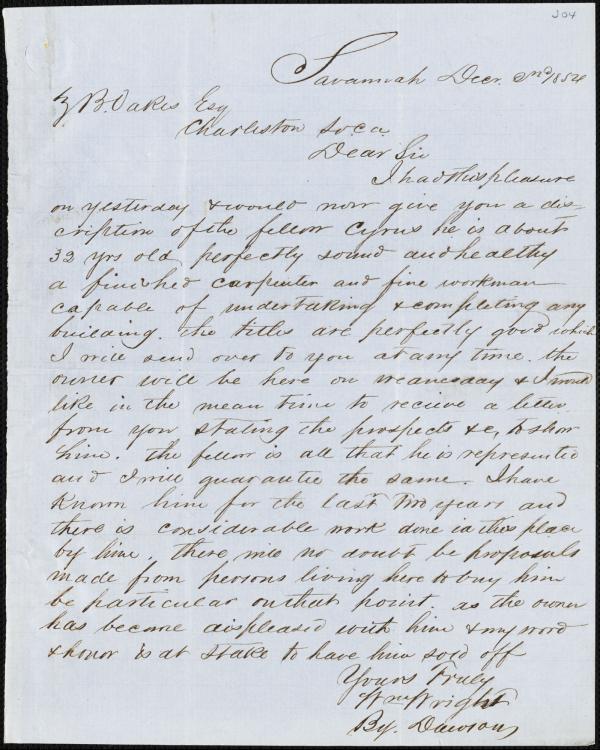 204
Savannah Decr. 2nd/1854
Z B. Oakes Esq
Charleston So.ca.
Dear Sir
I had this pleasure
on yesterday & would now give you a dis-
cription of the fellow Cyrus he is about
32 yrs old, perfectly sound and healthy
a finished carpenter and fine workman
capable of undertaking & completing any
building. the titles are perfectly good which
I will send over to you at any time. the
owner will be here on Wednesday & I would
like in the mean time to recieve a letter
from you stating the prospects &c, to show
him. the fellow is all that he is represented
and I will guarantie the same. I have
known him for the last two years and
there is considerable work done in this place
by him. there will no doubt be proposals
made from persons living here to buy him
be particular on that point. as the owner
has become displeased with him & my word
& honor is at stake to have him sold off
Yours Truly
Wm Wright
By. Dawson